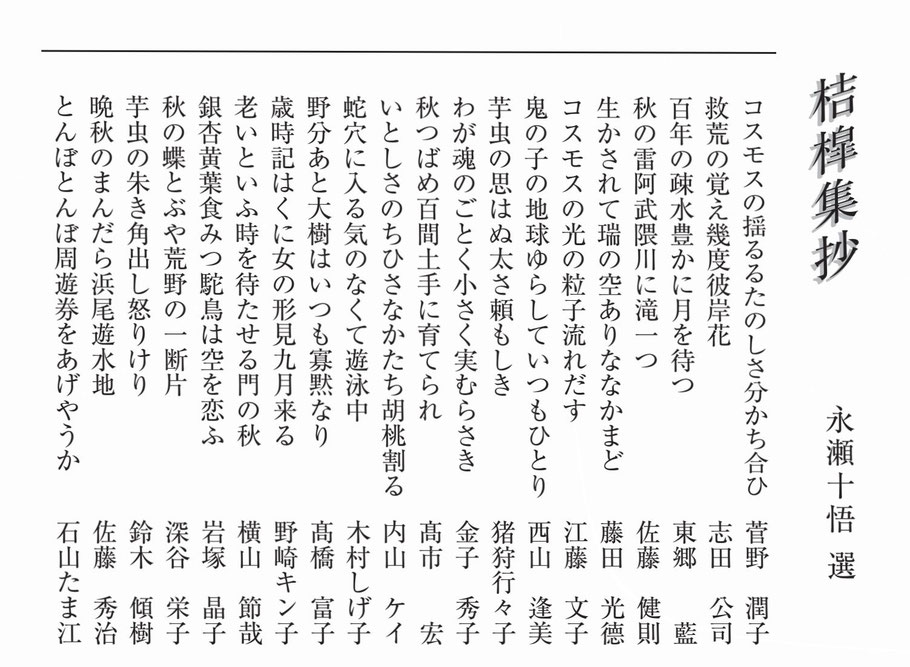 桔槹集抄
永瀬十悟 選
コスモスの揺るるたのしさ分かち合ひ 菅野 潤子
救荒の覚え幾度彼岸花 志田 公司
百年の疎水豊かに月を待つ 東郷 藍
秋の雷阿武隈川に滝一つ 佐藤 健則
生かされて瑞の空ありななかまど 藤田 光徳
コスモスの光の粒子流れだす 江藤 文子
鬼の子の地球ゆらしていつもひとり 西山 逢美
芋虫の思はぬ太さ頼もしき 猪狩行々子
わが魂のごとく小さく実むらさき 金子 秀子
秋つばめ百間土手に育てられ 髙市 宏
いとしさのちひさなかたち胡桃割る 内山 ケイ
蛇穴に入る気のなくて遊泳中 木村しげ子
野分あと大樹はいつも寡黙なり 髙橋 富子
歳時記はくに女の形見九月来る 野崎キン子
老いといふ時を待たせる門の秋 横山 節哉
銀杏黄葉食みつ駝鳥は空を恋ふ 岩塚 晶子
秋の蝶とぶや荒野の一断片 深谷 栄子
芋虫の朱き角出し怒りけり 鈴木 傾樹
晩秋のまんだら浜尾遊水地 佐藤 秀治
とんぼとんぼ周遊券をあげやうか 石山たま江